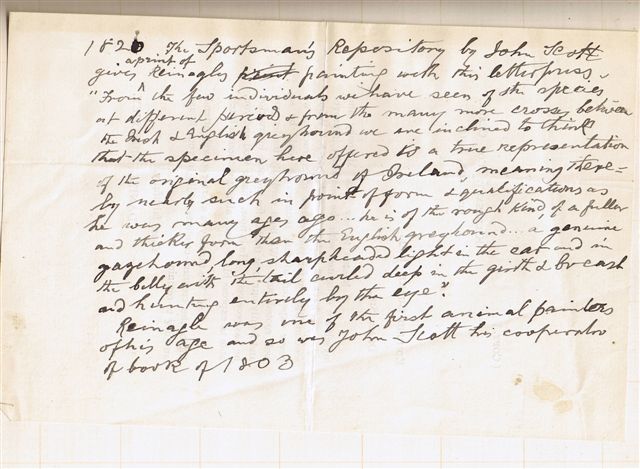 1820 The Sportsman's Repository by John Scott
a print of
gives Reinagles print painting with this letterpress.
"From the few individuals we have seen of the species
at different periods & from the many more crosses between
the Irish & English greyhound we are inclined to think
that the specimen here offered is a true representation
of the original greyhound of Ireland, meaning there=
by nearly such in point of form & qualifications as
he was many ages ago... he is of the rough kind, of a fuller
and thicker form than the English greyhound... a genuine
gazehound long, sharpheaded light in the ear and in
the belly with the tail curled deep in the girth & breast
and hunting entirely by the eye".
Reinagle was one of the first animal painters
of his age and so was John Scott his cooperator
of book of 1803